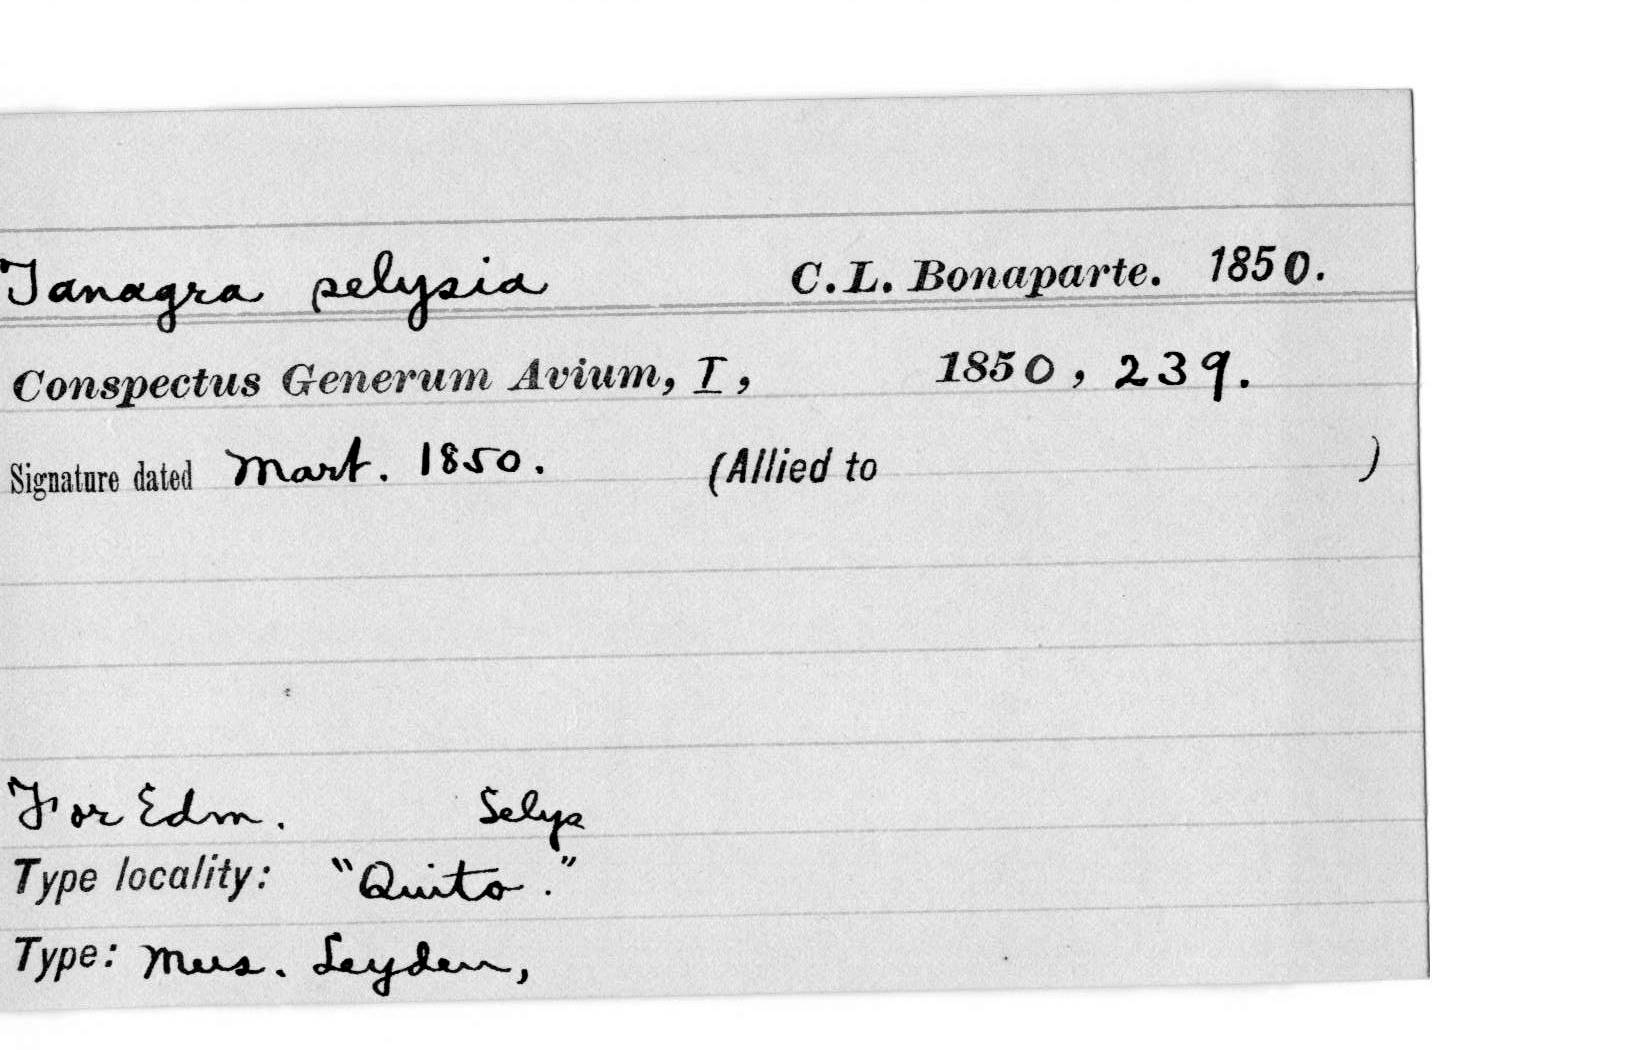 Tanagra selysia C. L. Bonaparte. 1850.
Conspectus Generum Avium, I, 1850, 239.
Signature dated Mart. 1850. (Allied to )
For Edm. Selys
Type locality: "Quito."
Type: Mus. Leyden,